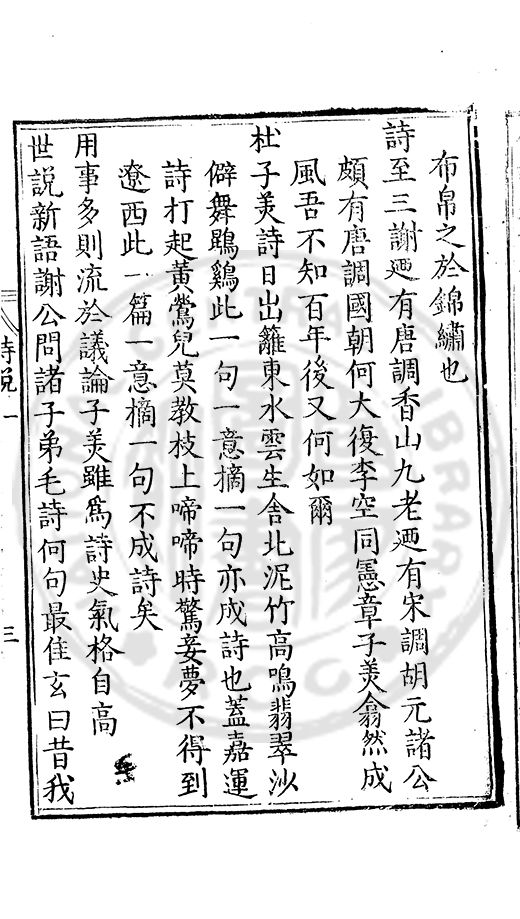 布帛之於錦繡也
詩至三謝廼有唐調香山九老廼有宋調胡元諸公
頗有唐調國朝何大復李空同憲章子美翕然成
風吾不知百年後又何如爾
杜子美詩日出籬東水雲生舍北泥竹高鳴翡翠沙
僻舞鵾鷄此一句一意摘一句亦成詩也蓋嘉運
詩打起黄鶯兒莫教枝上啼啼時驚妾夢不得到
遼西此一篇一意摘一句不成詩矣
用事多則流於議論子美雖爲詩史氣格自高
世説新語謝公問諸子弟毛詩何句最佳玄曰昔我
詩説一
三